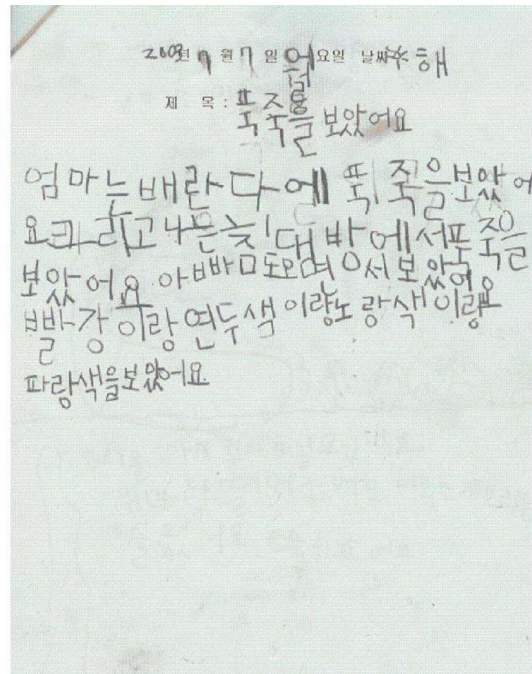 2003년 7월 7일 월요일 날짜 해
제 목: 폭죽을 보았어요
엄마는 배란다에 폭죽을보았어
요그리고 나는 대방에서폭죽을
보았어요 아빠 서보았어요
빨강이랑 연두색이랑노랑색이랑
파랑색을보았어요